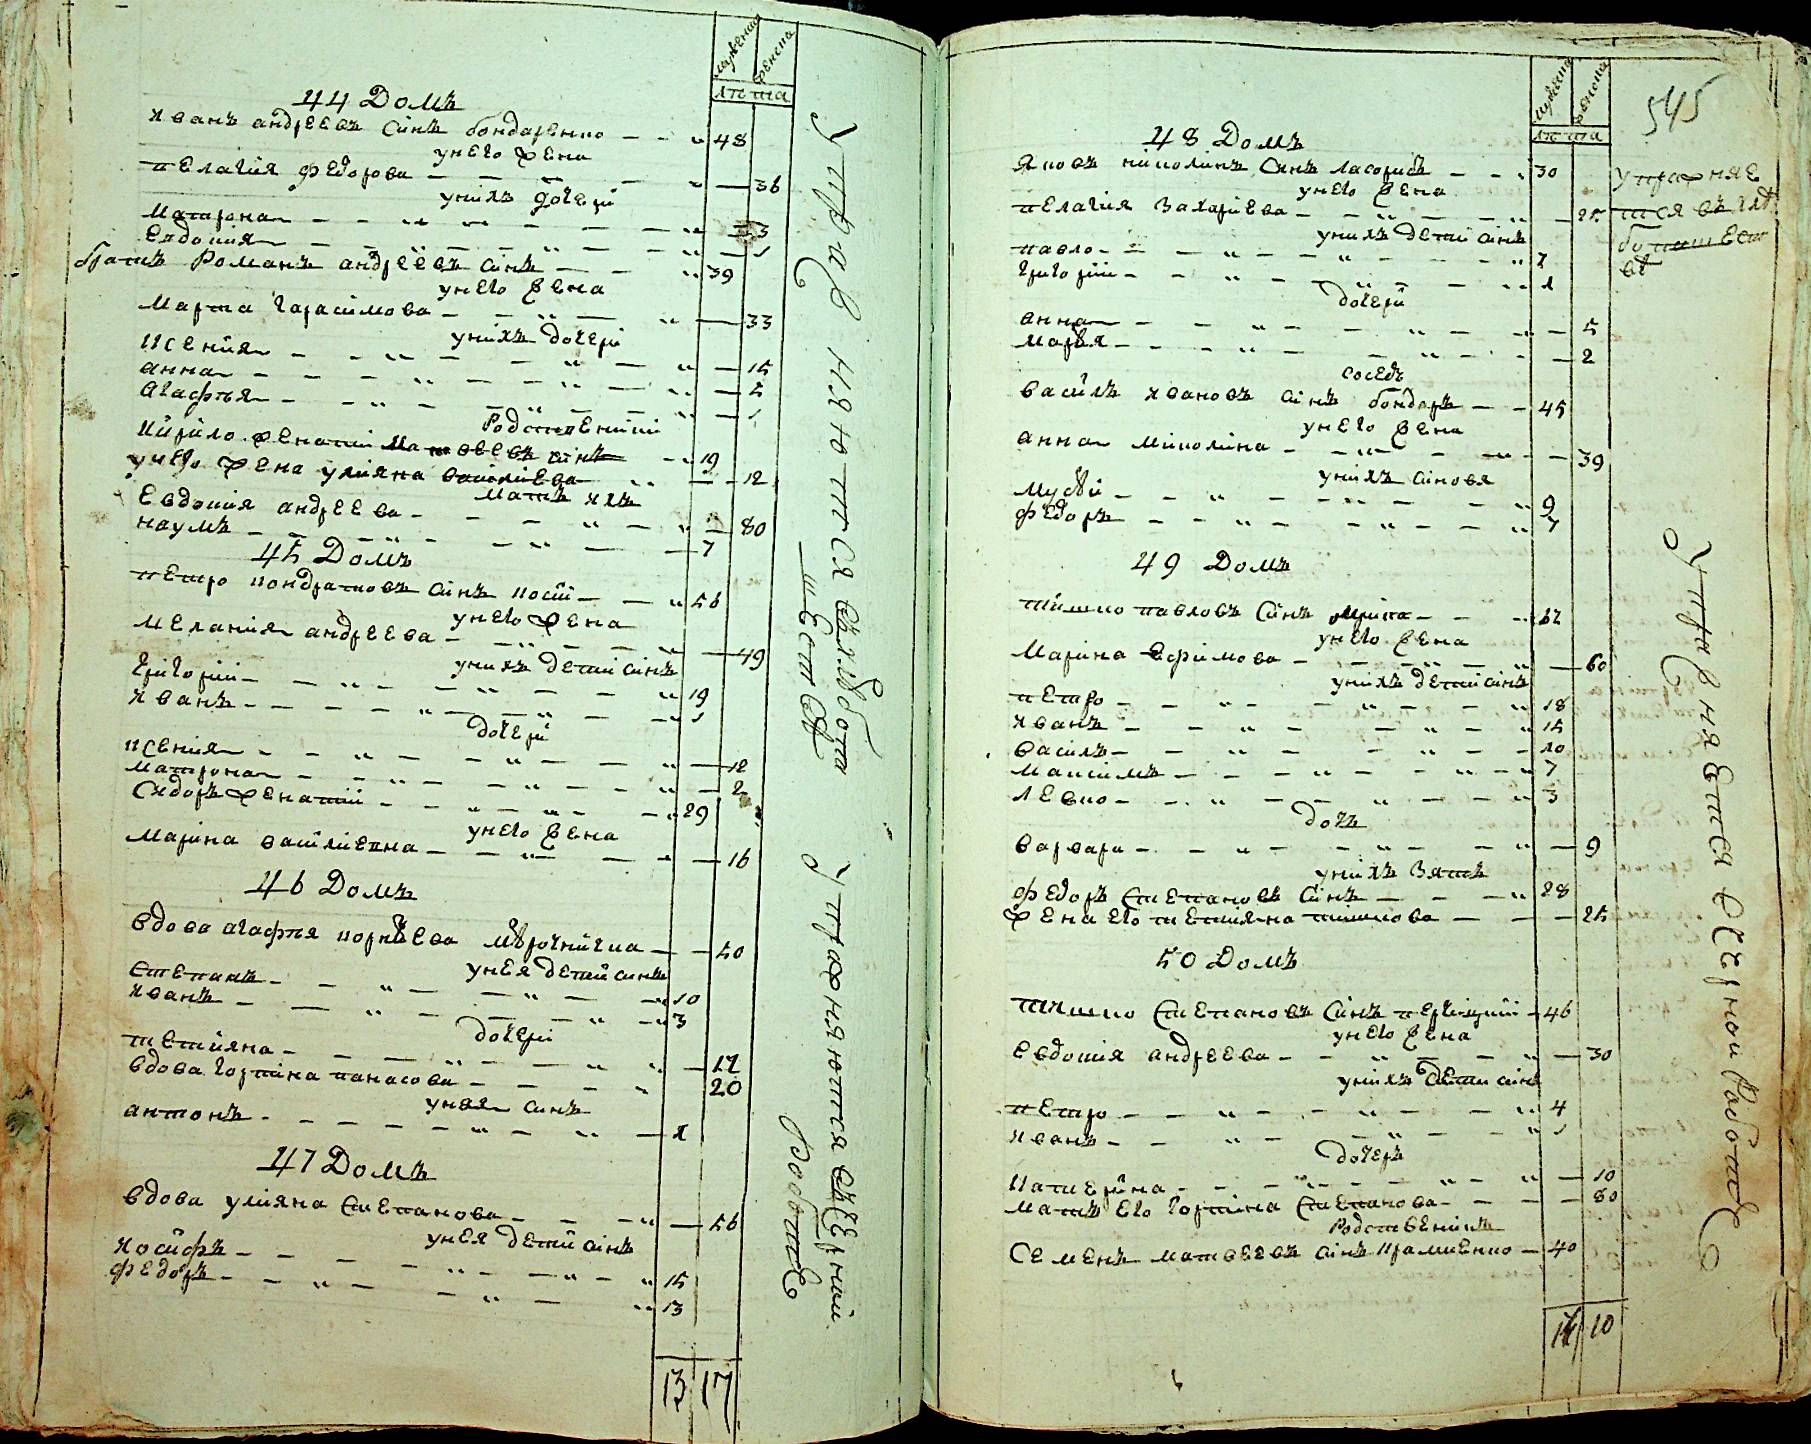 мужеска
женска
лѣта
44 Домъ
Иванъ андреевъ синъ бондаренко 48
унего жена
пелагия федорова 36
унихъ дочери
Матрона 3
Евдокия 1
братъ Романъ андреевъ синъ 39
унего жена
Марта гарасимова 33
унихъ дочери
ксения 15
анна 5
агафия 1
Родственики
Кирило женатий Матвеевъ синъ 19
унего жена улияна василиева 12
Мать ихъ
Евдокия андреева 80
наумъ 7
45 Домъ
петро кондратовъ синъ косий 56
унего жена
Мелания андреева 49
унихъ дети синъ
григорий 19
Иванъ 1
дочери
ксения 12
матрона 2
Сидоръ женатий 29
унего жена
Марина василиевна 16
46 Домъ
вдова агафия корниева 50
унея дети синъ
степанъ 10
Иванъ 3
дочери
тетияна 12
вдова горпина панасова 20
унея синъ
антонъ 1
47 Домъ
вдова улияна степанова 56
унея дети синъ
Иосифъ 15
федоръ 13
13 17
Упражняются вхлѣбопа
шествѣ
Упражняются вчерной
работе
мужеска
женска
лѣта
545
48 Домъ
Яковъ николинъ синъ 30
унего жена
пелагия Захариева 25
унихъ дети синъ
павло 7
григорий 1
дочери
анна 5
Марья 2
соседъ
василь Ивановъ синъ бондарь 45
унего жена
анна Николина 39
унихъ синовя
Мусѣй 9
федоръ 7
49 Домъ
тишко павловъ синъ 62
унего жена
Марина Ефимова 60
унихъ дети синъ
петро 18
Иванъ 15
василь 10
Максимъ 7
левко 3
дочь
варвара 9
унихъ Зять
федоръ степановъ синъ 28
жена его тетияна тишкова 25
50 Домъ
тишко степановъ синъ 46
унего жена
Евдокия андреева 30
унихъ дети синъ
петро 4
Иванъ 1
дочеръ
Катерина 10
Мать его горпина степанова 80
Родственикъ
Семенъ матвеевъ синъ 40
14 10
упражняе
тся въ хлѣ
бопашест
вѣ
Упражняется вчерной работе